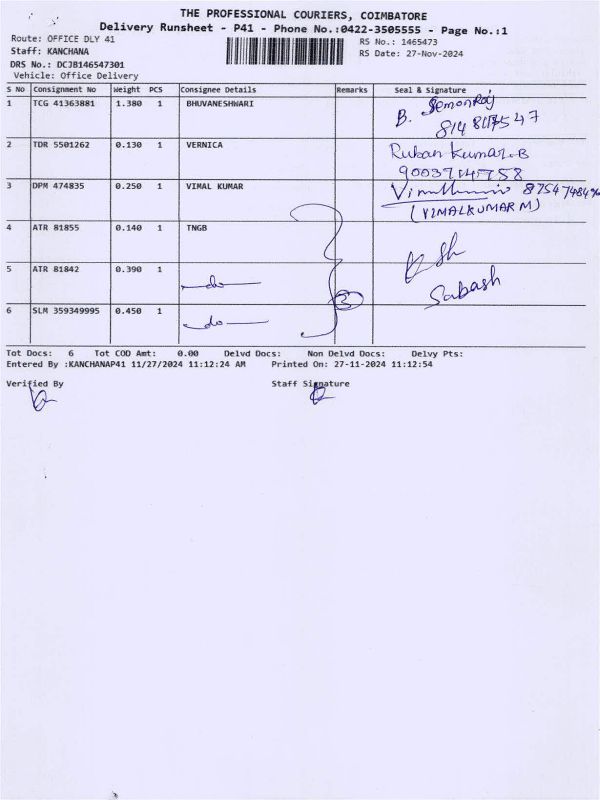 THE PROFESSIONAL COURIERS, COIMBATORE
Delivery Runsheet - P41 - Phone No.:0422-3505555 - Page No.:1
Route: OFFICE DLY 41
RS No.: 1465473
Staff: KANCHANA
RS Date: 27-Nov-2024
DRS No.: DCJ8146547301
Vehicle: Office Delivery
S No Consignment No Weight PCS Consignee Details Remarks Seal & Signature
1 TCG 41363881 1.380 1 BHUVANESHWARI
B.
2 TDR 5501262 0.130 1 VERNICA Ruban Kumar.B
3 DPM 474835 0.250 1 VIMAL KUMAR
(VIMALKUMAR M)
4 ATR 81855 0.140 1 TNGB
5 ATR 81842 0.390 1 do
Sabash
6 SLM 359349995 0.450 1 do
3
Tot Docs: 6 Tot COD Amt: 0.00 Delvd Docs: Non Delvd Docs: Delvy Pts:
Entered By :KANCHANAP41 11/27/2024 11:12:24 AM Printed On: 27-11-2024 11:12:54
Verified By Staff Signature